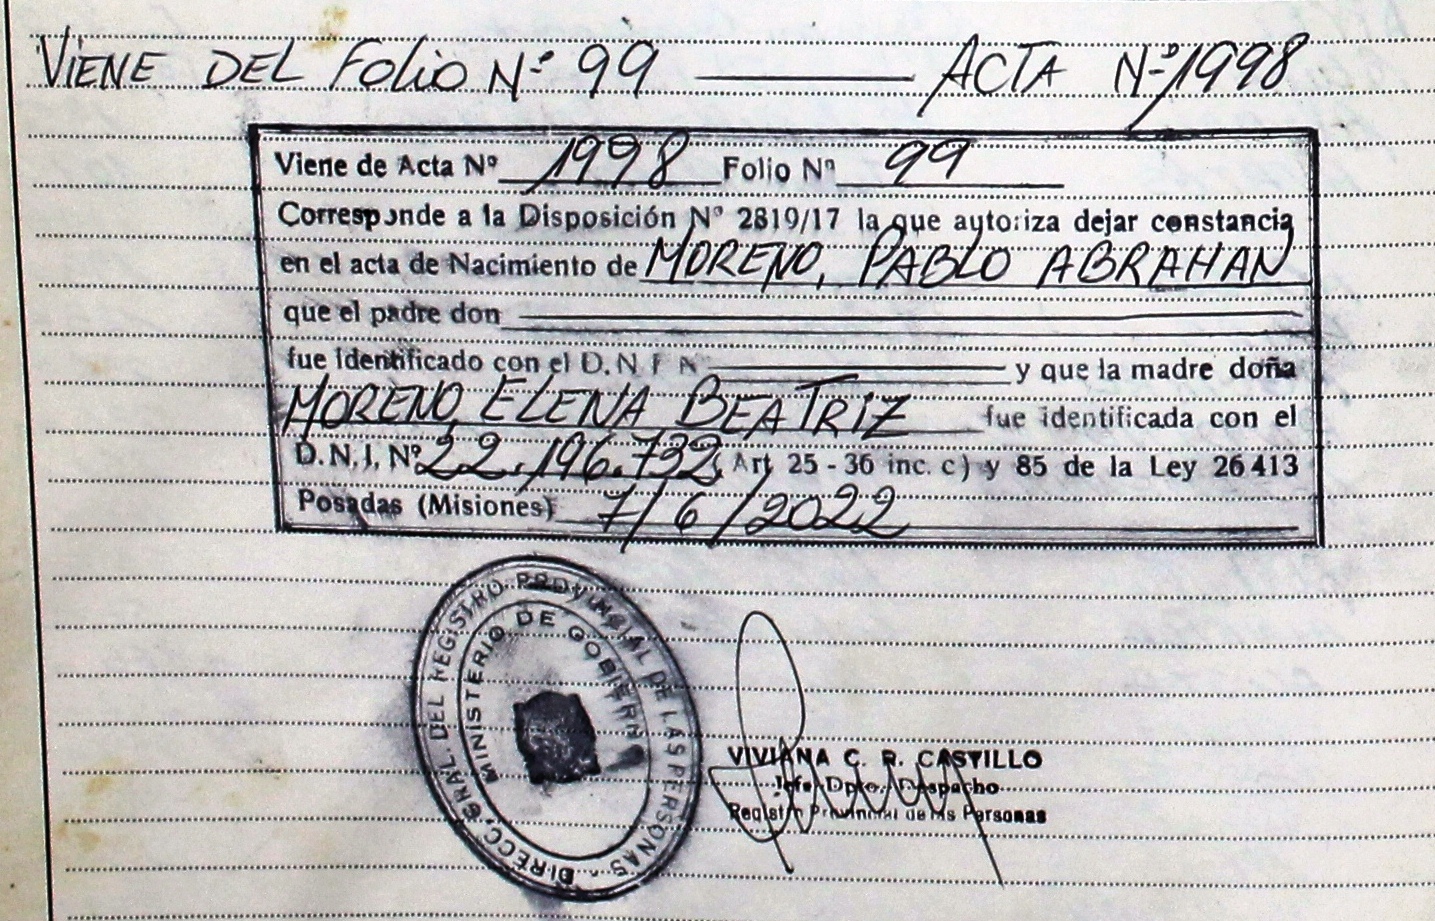 VIENE DEL FOLIO Nº 99 ——— ACTA Nº 1998
Viene de Acta Nº 1998 Folio Nº 99
Corresponde a la Disposición Nº 2819/17 la que autoriza dejar constancia
en el acta de Nacimiento de MORENO, PABLO ABRAHAN
que el padre don
fue identificado con el D.N.I. Nº y que la madre doña
MORENO, ELENA BEATRIZ fue identificada con el
D.N.I. Nº 22.196.732, Art 25 - 36 inc. c) y 85 de la Ley 26413
Posadas (Misiones) 7/6/2022
DIRECC. GRAL. DEL REGISTRO PROVINCIAL DE LAS PERSONAS -
MINISTERIO DE GOBIERNO
VIVIANA C. R. CASTILLO
Jefe Dpto. Despacho
Registro Provincial de las Personas